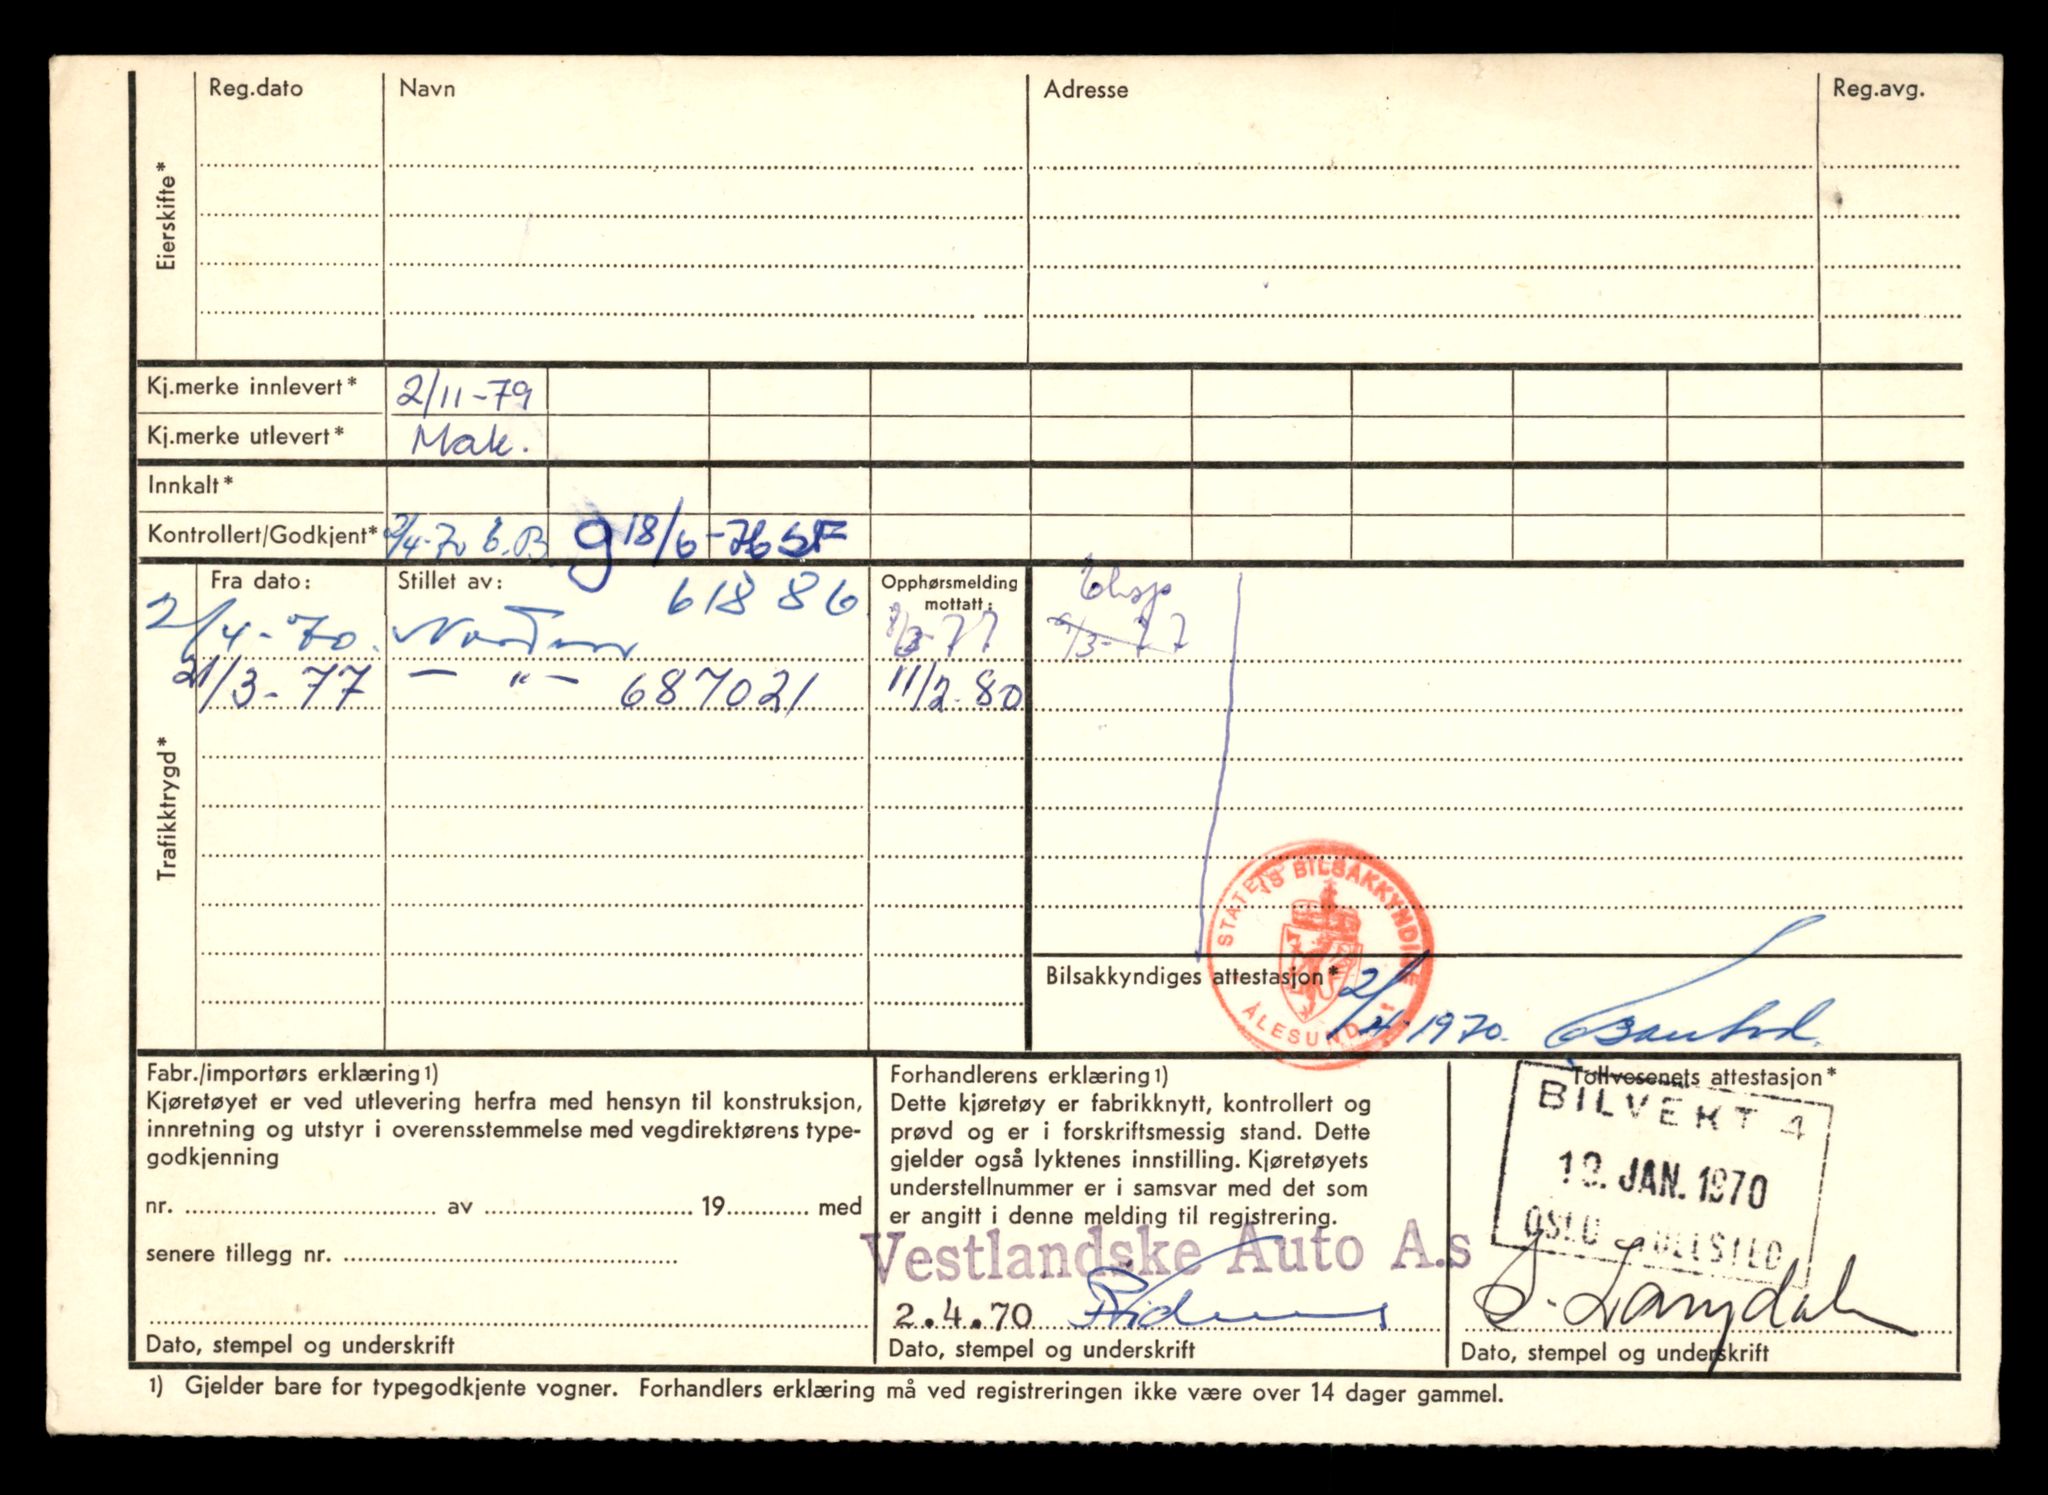 Reg.dato Navn Adresse Reg.avg.
Eierskifte*
Kj.merke innlevert* 2/11-79
Kj.merke utlevert* Mak.
Innkalt*
Kontrollert/Godkjent* 2/4-70 E.B. g 18/6-76 SF
Trafikktrygd*
Fra dato: Stillet av: 61886 Opphørsmelding mottatt:
2/4-70. 8/3-77 9/3-77
21/3-77 — " — 687021 11/2-80
STATENS BILSAKKYNDIGE I ÅLESUND
Bilsakkyndiges attestasjon* 2/4-1970.
Fabr./importørs erklæring1)
Kjøretøyet er ved utlevering herfra med hensyn til konstruksjon,
innretning og utstyr i overensstemmelse med vegdirektørens type-
godkjenning
nr. av 19 med
senere tillegg nr.
Dato, stempel og underskrift
Forhandlerens erklæring1)
Dette kjøretøy er fabrikknytt, kontrollert og
prøvd og er i forskriftsmessig stand. Dette
gjelder også lyktenes innstilling. Kjøretøyets
understellnummer er i samsvar med det som
er angitt i denne melding til registrering.
Vestlandske Auto A.s
2.4.70
Dato, stempel og underskrift
Tollvesenets attestasjon*
BILVEKT 4
JAN. 1970
OSLO TOLLSTED
S. Langdal
Dato, stempel og underskrift
1) Gjelder bare for typegodkjente vogner. Forhandlers erklæring må ved registreringen ikke være over 14 dager gammel.